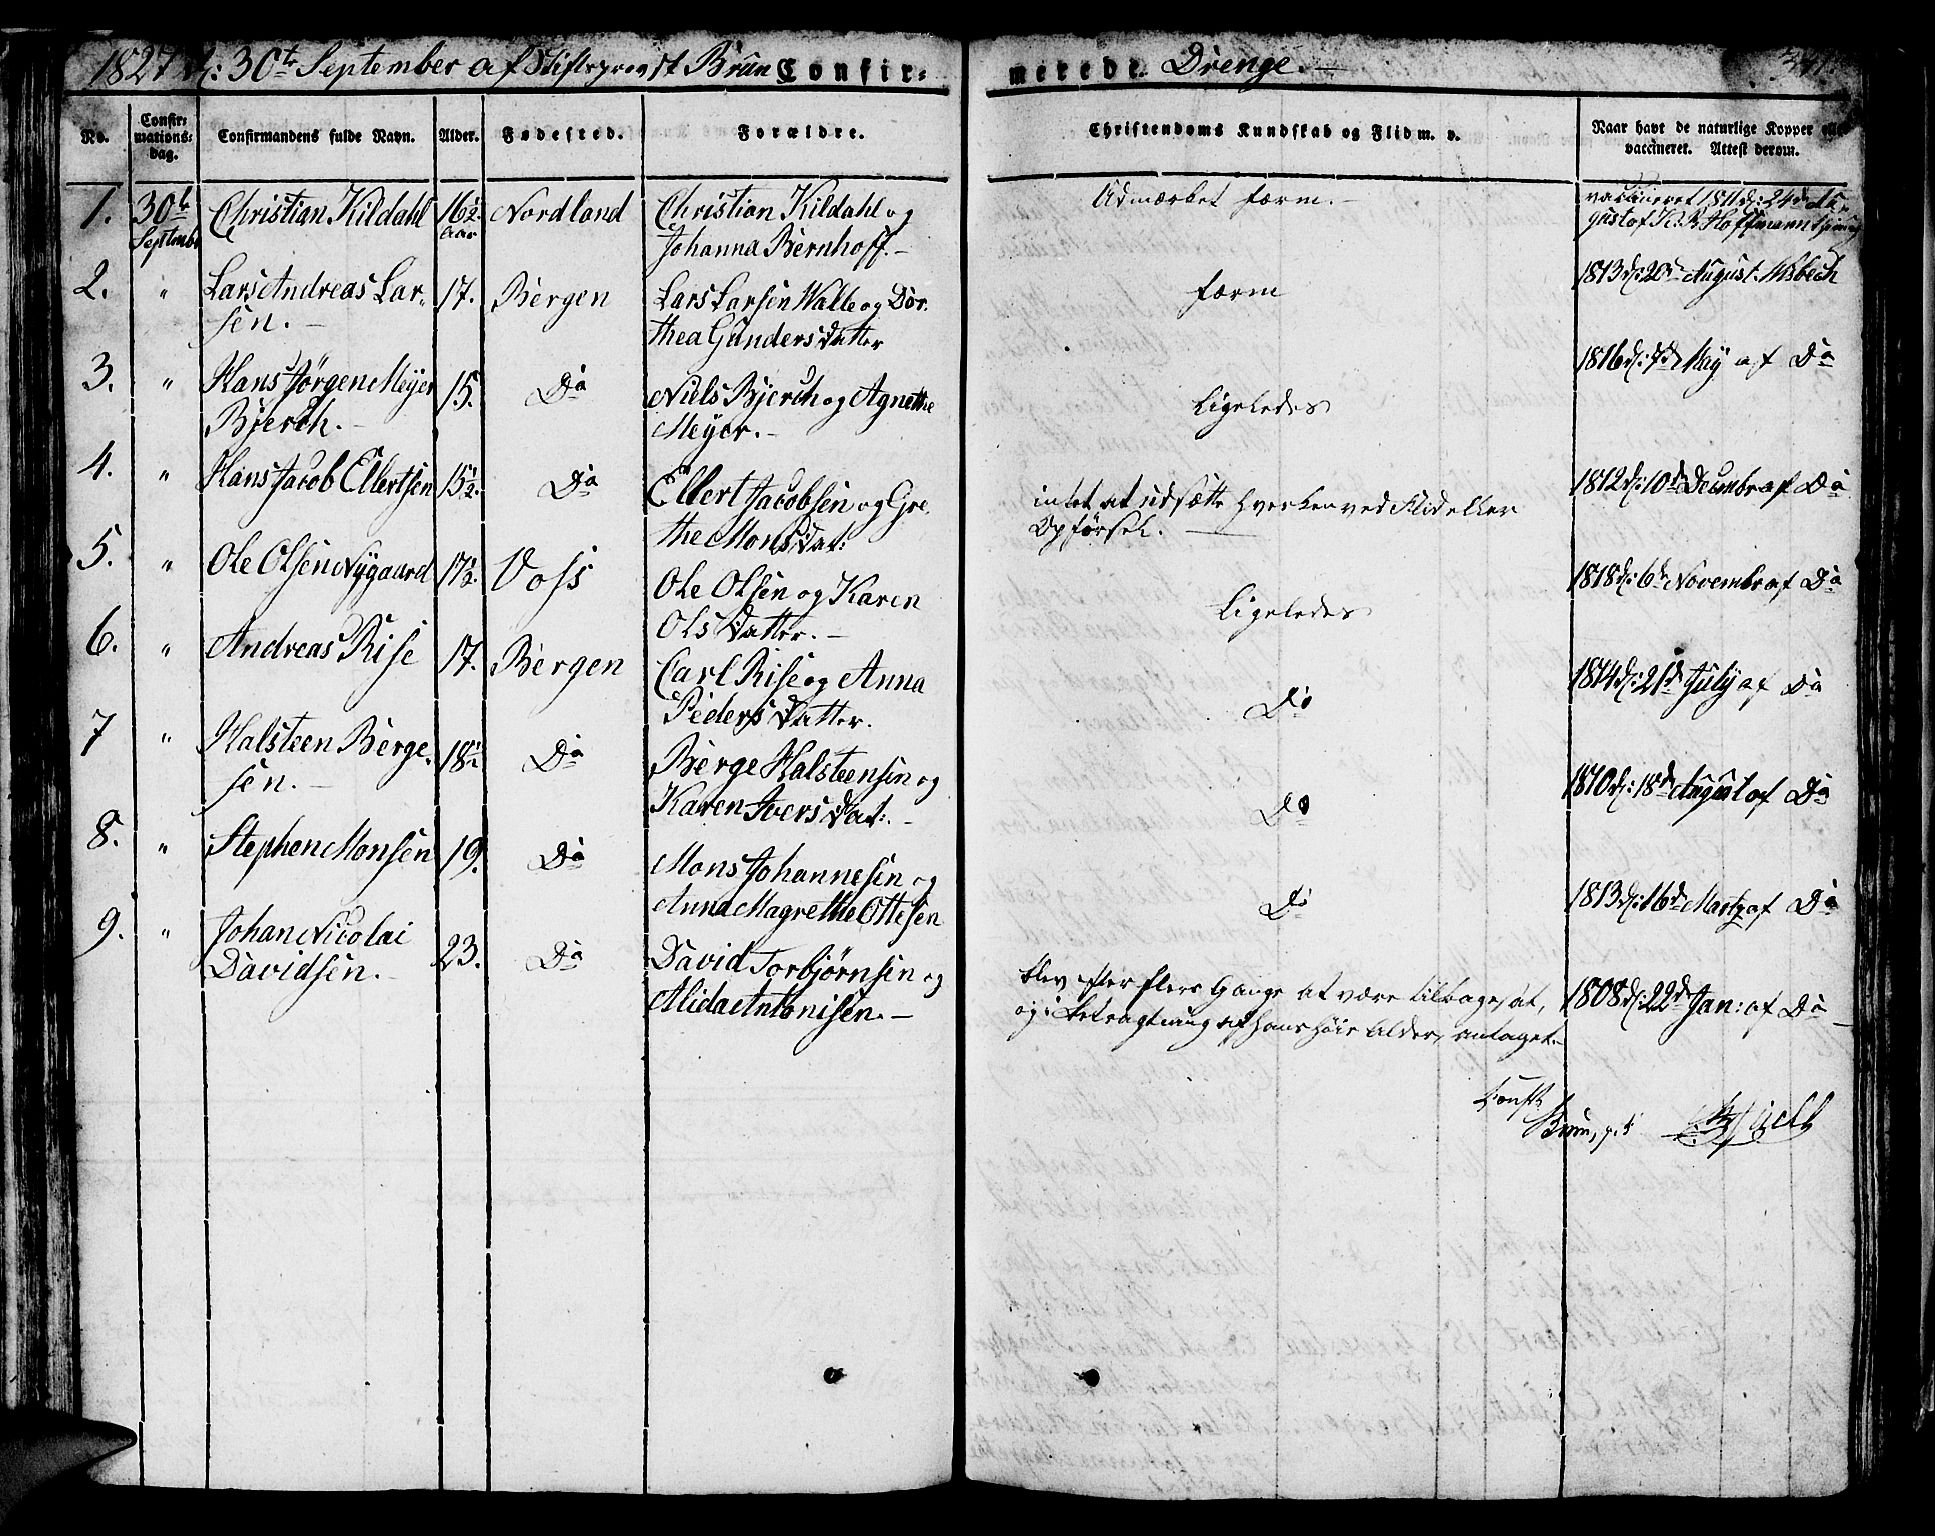 1827 d: 30t September af Stiftsprovst Brun Confirmerede Drenge.
No. Confirmationsdag. Confirmandens fulde Navn. Alder. Fødested. Forældre. Christendoms Kundskab og Flid m. v. Naar havt de naturlige Kopper eller vaccineret. Attest derom.
1. 30t September Christian Kildahl 16½ Aar Nordland Christian Kildahl og
Johanna Bernhoff. Udmærket færm. vaccineret 1811 d: 24de August af Hoffmann
2. " Lars Andreas Larsen. 17. Bergen Lars Larsen Walle og Dorthea Gunders Datter færm 1813 d: 20de August. Misbech
3. " Hans Jørgen Meyer
Bjerch. 15. Do Niels Bjerch og Agnethe
Meyer. Ligeledes 1816 d: 7de May af Do
4. " Hans Jacob Ellertsen 15½. Do Ellert Jacobsen og Grethe Mons Dat: intet at udsætte hverken ved Flid eller
Opførsel. 1812 d: 10de Decembr af Do
5. " Ole Olsen Nygaard 17½. Voss Ole Olsen og Karen
Ols Datter. Ligeledes 1818 d: 6te Novembr af Do
6. " Andreas Rise 17. Bergen Carl Rise og Anna
Peders Datter. Do 1814 d: 21de July af Do
7 " Halsteen Bergesen. 18½ Do Berge Halsteensen og
Karen Ivers Dat: Do 1810 d: 18de August af Do
8. " Stephen Monsen 19. Do Mons Johannesen og
Anna Magrethe Ottesen Do 1813 d: 16de Martz af Do
9. " Johan Nicolai
Davidsen. 23. Do David Torbjørnsen og
Alida Antonisen. blev efter flere Gange at være tilbagesat,
og i Betragtning af hans høie Alder, antaget. 1808 d: 22de Jan: af Do
Brun,